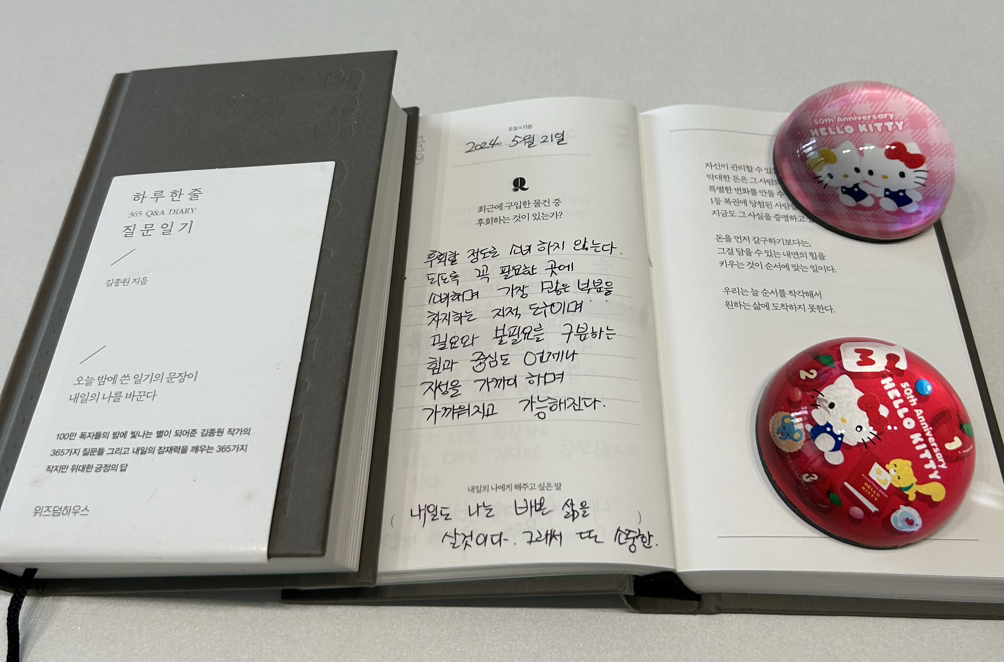 하루한줄
365 Q&A DIARY
질문일기
김종원 지음
오늘 밤에 쓴 일기의 문장이
내일의 나를 바꾼다
100만 독자들의 밤에 빛나는 별이 되어준 김종원 작가의
365가지 질문들 그리고 내일의 잠재력을 깨우는 365가지
작지만 위대한 긍정의 답
위즈덤하우스
2024. 5월 21일
Q
최근에 구입한 물건 중
후회하는 것이 있는가?
후회할 정도로 소비 하지 않는다.
되도록 꼭 필요한 곳에
소비하며 가장 많은 부분을
차지하는 지적, 도서이며
필요와 불필요를 구분하는
힘과 중심도 언제나
지성을 가까이 하며
가까워지고 가능해진다.
내일의 나에게 해주고 싶은 말
( 내일도 나는 바쁜 삶을 )
살것이다. 그래서 또 소중한.
자신이 관리할 수 있
막대한 돈은 그 사람
특별한 변화를 만들 수
1등 복권에 당첨된 사람
지금도 그 사실을 증명하고
돈을 먼저 갈구하기보다는,
그걸 담을 수 있는 내면의 힘을
키우는 것이 순서에 맞는 일이다.
우리는 늘 순서를 착각해서
원하는 삶에 도착하지 못한다.
50th Anniversary
HELLO KITTY
50th Anniversary
HELLO KITTY
2
1
3